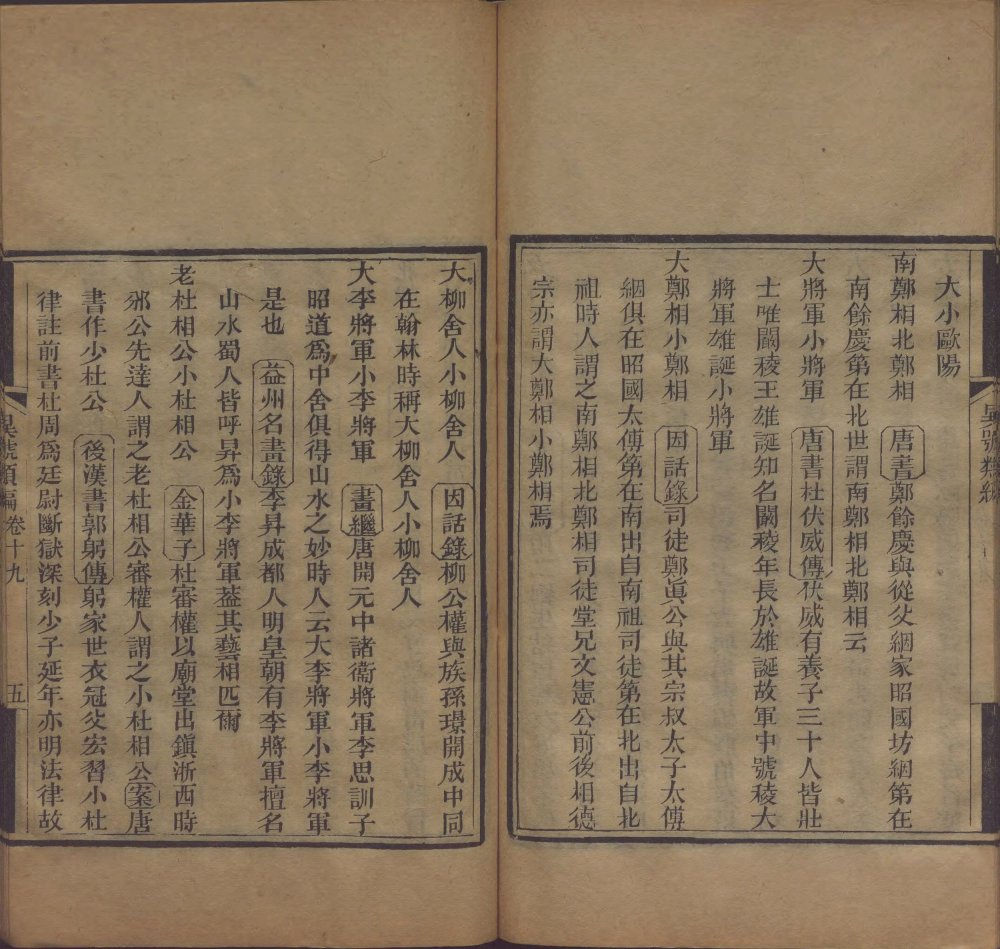 大小歐陽
南鄭相北鄭相　唐書鄭餘慶與從父絪家昭國坊絪第在
南餘慶第在北世謂南鄭相北鄭相云
大將軍小將軍　唐書杜伏威傳伏威有養子三十人皆壯
士唯闞稜王雄誕知名闞稜年長於雄誕故軍中號稜大
將軍雄誕小將軍
大鄭相小鄭相　因話錄司徒鄭眞公與其宗叔太子太傅
絪俱在昭國太傅第在南出自南祖司徒第在北出自北
祖時人謂之南鄭相北鄭相司徒堂兄文憲公前後相德
宗亦謂大鄭相小鄭相焉
異號類編
大柳舍人小柳舍人　因話錄柳公權與族孫璟開成中同
在翰林時稱大柳舍人小柳舍人
大李將軍小李將軍　畫繼唐開元中諸衞將軍李思訓子
昭道爲中舍俱得山水之妙時人云大李將軍小李將軍
是也　益州名畫錄李昇成都人明皇朝有李將軍擅名
山水蜀人皆呼昇爲小李將軍蓋其藝相匹爾
老杜相公小杜相公　金華子杜審權以廟堂出鎭浙西時
邠公先達人謂之老杜相公審權人謂之小杜相公案唐
書作少杜公　後漢書郭躬傳躬家世衣冠父宏習小杜
律註前書杜周爲廷尉斷獄深刻少子延年亦明法律故
異號類編卷十九　五